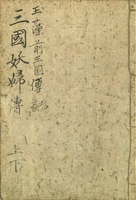 玉藻前三國傳記
三國妖婦傳
上下